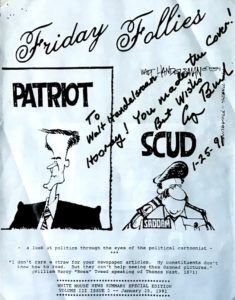 Friday Follies
WALT HANDELSMAN
PATRIOT
To
Walt Handelsman
Hooray! You made the Cover!
Best Wishes
G Bush
1-25-91
SCUD
SADDAM
- a look at politics through the eyes of the political cartoonist -
"I don't care a straw for your newspaper articles. My constituents don't
know how to read. But they can't help seeing them damned pictures."
(William Marcy "Boss" Tweed speaking of Thomas Nast, 1871)
WHITE HOUSE NEWS SUMMARY SPECIAL EDITION
VOLUME III ISSUE -- January 25, 1991